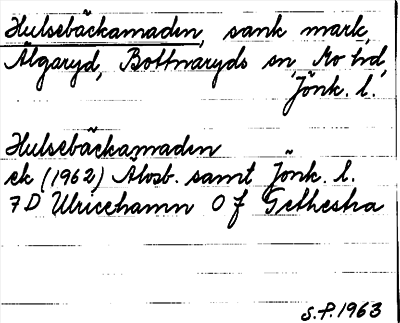 Hulsebäckamaden, sank mark,
Älgaryd, Bottnaryds sn Mo hd,
Jönk. l.
Hulsebäckamaden
ek (1962) Älvsb. samt Jönk. l.
7 D Ulricehamn 0 f Gethestra
S.P. 1963